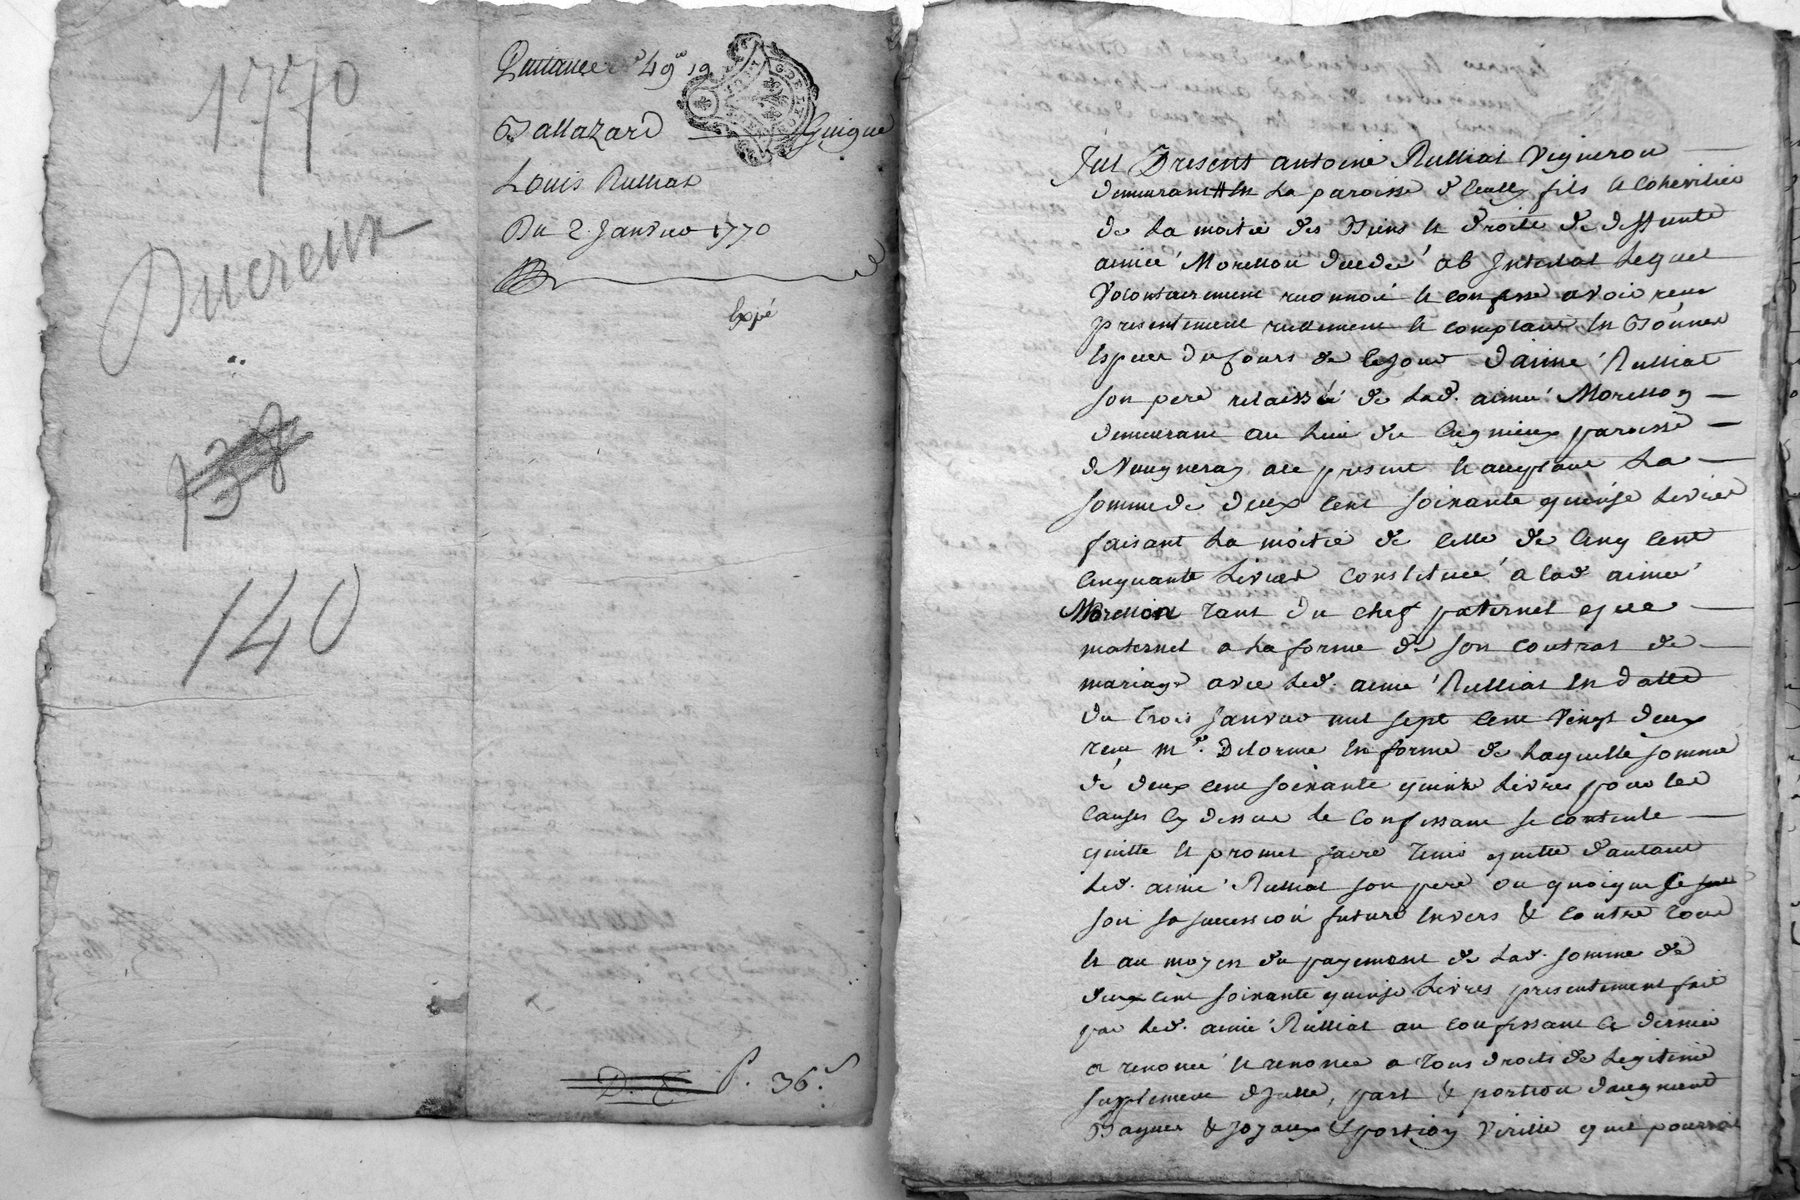 1770
Ducreux
138
140
Quittance 49 19
Baltazard Guigue
Louis Rulliat
Du 2 Janvier 1770
Expé
D. E. P. 36 s
Fut Present antoine Rulliat Vigneron
demeurant en La paroisse d fils et Coheritier
de La moitié des Biens et droits de deffunte
aimée Morellon decedée ab Intestat Lequel
Volontairement reconnoit et confesse avoir reçu
presentement reellement et comptant en Bonnes
Especes du Cours de ce jour d'aimé Rulliat
son pere relaissé de Lad. aimée Morellon
demeurant au Lieu de paroisse
de Vaugneray ace present et acceptant La
somme de deux Cent soixante quinze Livres
faisant La moitié de Celle de Cinq Cent
Cinquante Livres Constituée a lad. aimée
Morellon tant du chef paternel que
maternel a La forme de son Contrat de
mariage avec Led. aimé Rulliat En datte
du trois Janvier mil sept Cent Vingt deux
reçu Me. Delorme En forme de Laquelle somme
de deux Cent soixante quinze Livres pour les
Causes Cy dessus Le Confessant se contente
quitte et promet faire tenir quitte d'autant
Led. aimé Rulliat son pere ou quoique ce
soit sa succession future Envers & Contre tous
Et au moyen du payement de Lad. somme de
deux Cent soixante quinze Livres presentement fait
par Led. aimé Rulliat au Confessant Ce dernier
a renoncé et renonce a tous droits de Legitime
supplement d'Icelle, part & portion d'augment
Bagues & Joyaux & portion Virille qu'il pourroit